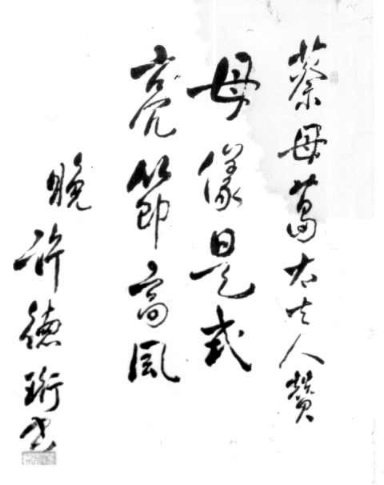 蔡母葛太夫人贊
母儀是式
亮節高風
晚許德珩書